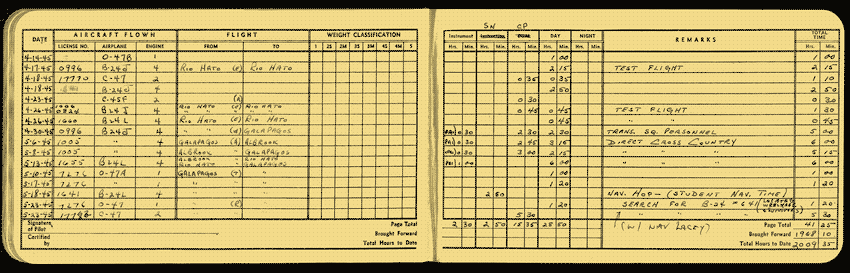 SN CP
AIRCRAFT FLOWN FLIGHT WEIGHT CLASSIFICATION
DATE LICENSE NO. AIRPLANE ENGINE FROM TO 1 2S 2M 3S 3M 4S 4M 5
Instrument DAY NIGHT REMARKS TOTAL TIME
Hrs. Min. Hrs. Min. Hrs. Min. Hrs. Min. Hrs. Min. Hrs. Min.
4-14-45 O-47B 1 1 00 1 00
4-17-45 0996 B-24J 4 RIO HATO RIO HATO 2 15 TEST FLIGHT 2 15
4-18-45 17770 C-47 2 0 35 0 35 1 10
4-18-45 B-24J 4 2 50 2 50
4-23-45 C-45F 2 (A) 0 30 0 30
4-26-45 B24J 4 RIO HATO RIO HATO 0 45 0 45 TEST FLIGHT 1 30
4-26-45 1660 B24L 4 RIO HATO RIO HATO 0 45 " " 0 45
4-30-45 0996 B24J 4 " " GALAPAGOS 0 30 2 30 2 30 TRANS. SQ. PERSONNEL 5 00
5-6-45 1005 " 4 GALAPAGOS (A) ALBROOK 0 30 2 45 3 15 DIRECT CROSS COUNTRY 6 00
5-8-45 1005 " 4 ALBROOK GALAPAGOS 0 30 3 00 2 15 " " 5 15
5-13-45 1655 B24L 4 ALBROOK RIO HATO RIO HATO GALAPAGOS 1 00 6 00 " " 6 00
5-10-45 7276 O-47A 1 GALAPAGOS (T) " 1 00
5-17-45 7276 " 1 " " 1 20 1 20
5-18-45 1641 B-24L 4 " " 2 50 NAV. HOP - (STUDENT NAV. TIME)
5-23-45 7276 O-47 1 " " 1 20 SEARCH FOR B-24 #641 1 20
5-23-45 C-47 2 " " 5 30 " " " 5 30
Signature of Pilot Page Total 2 30 2 50 15 35 28 50 (W/ NAV LACEY) Page Total 41 25
Certified by Brought Forward Brought Forward 1968 10
Total Hours to Date Total Hours to Date 2009 35